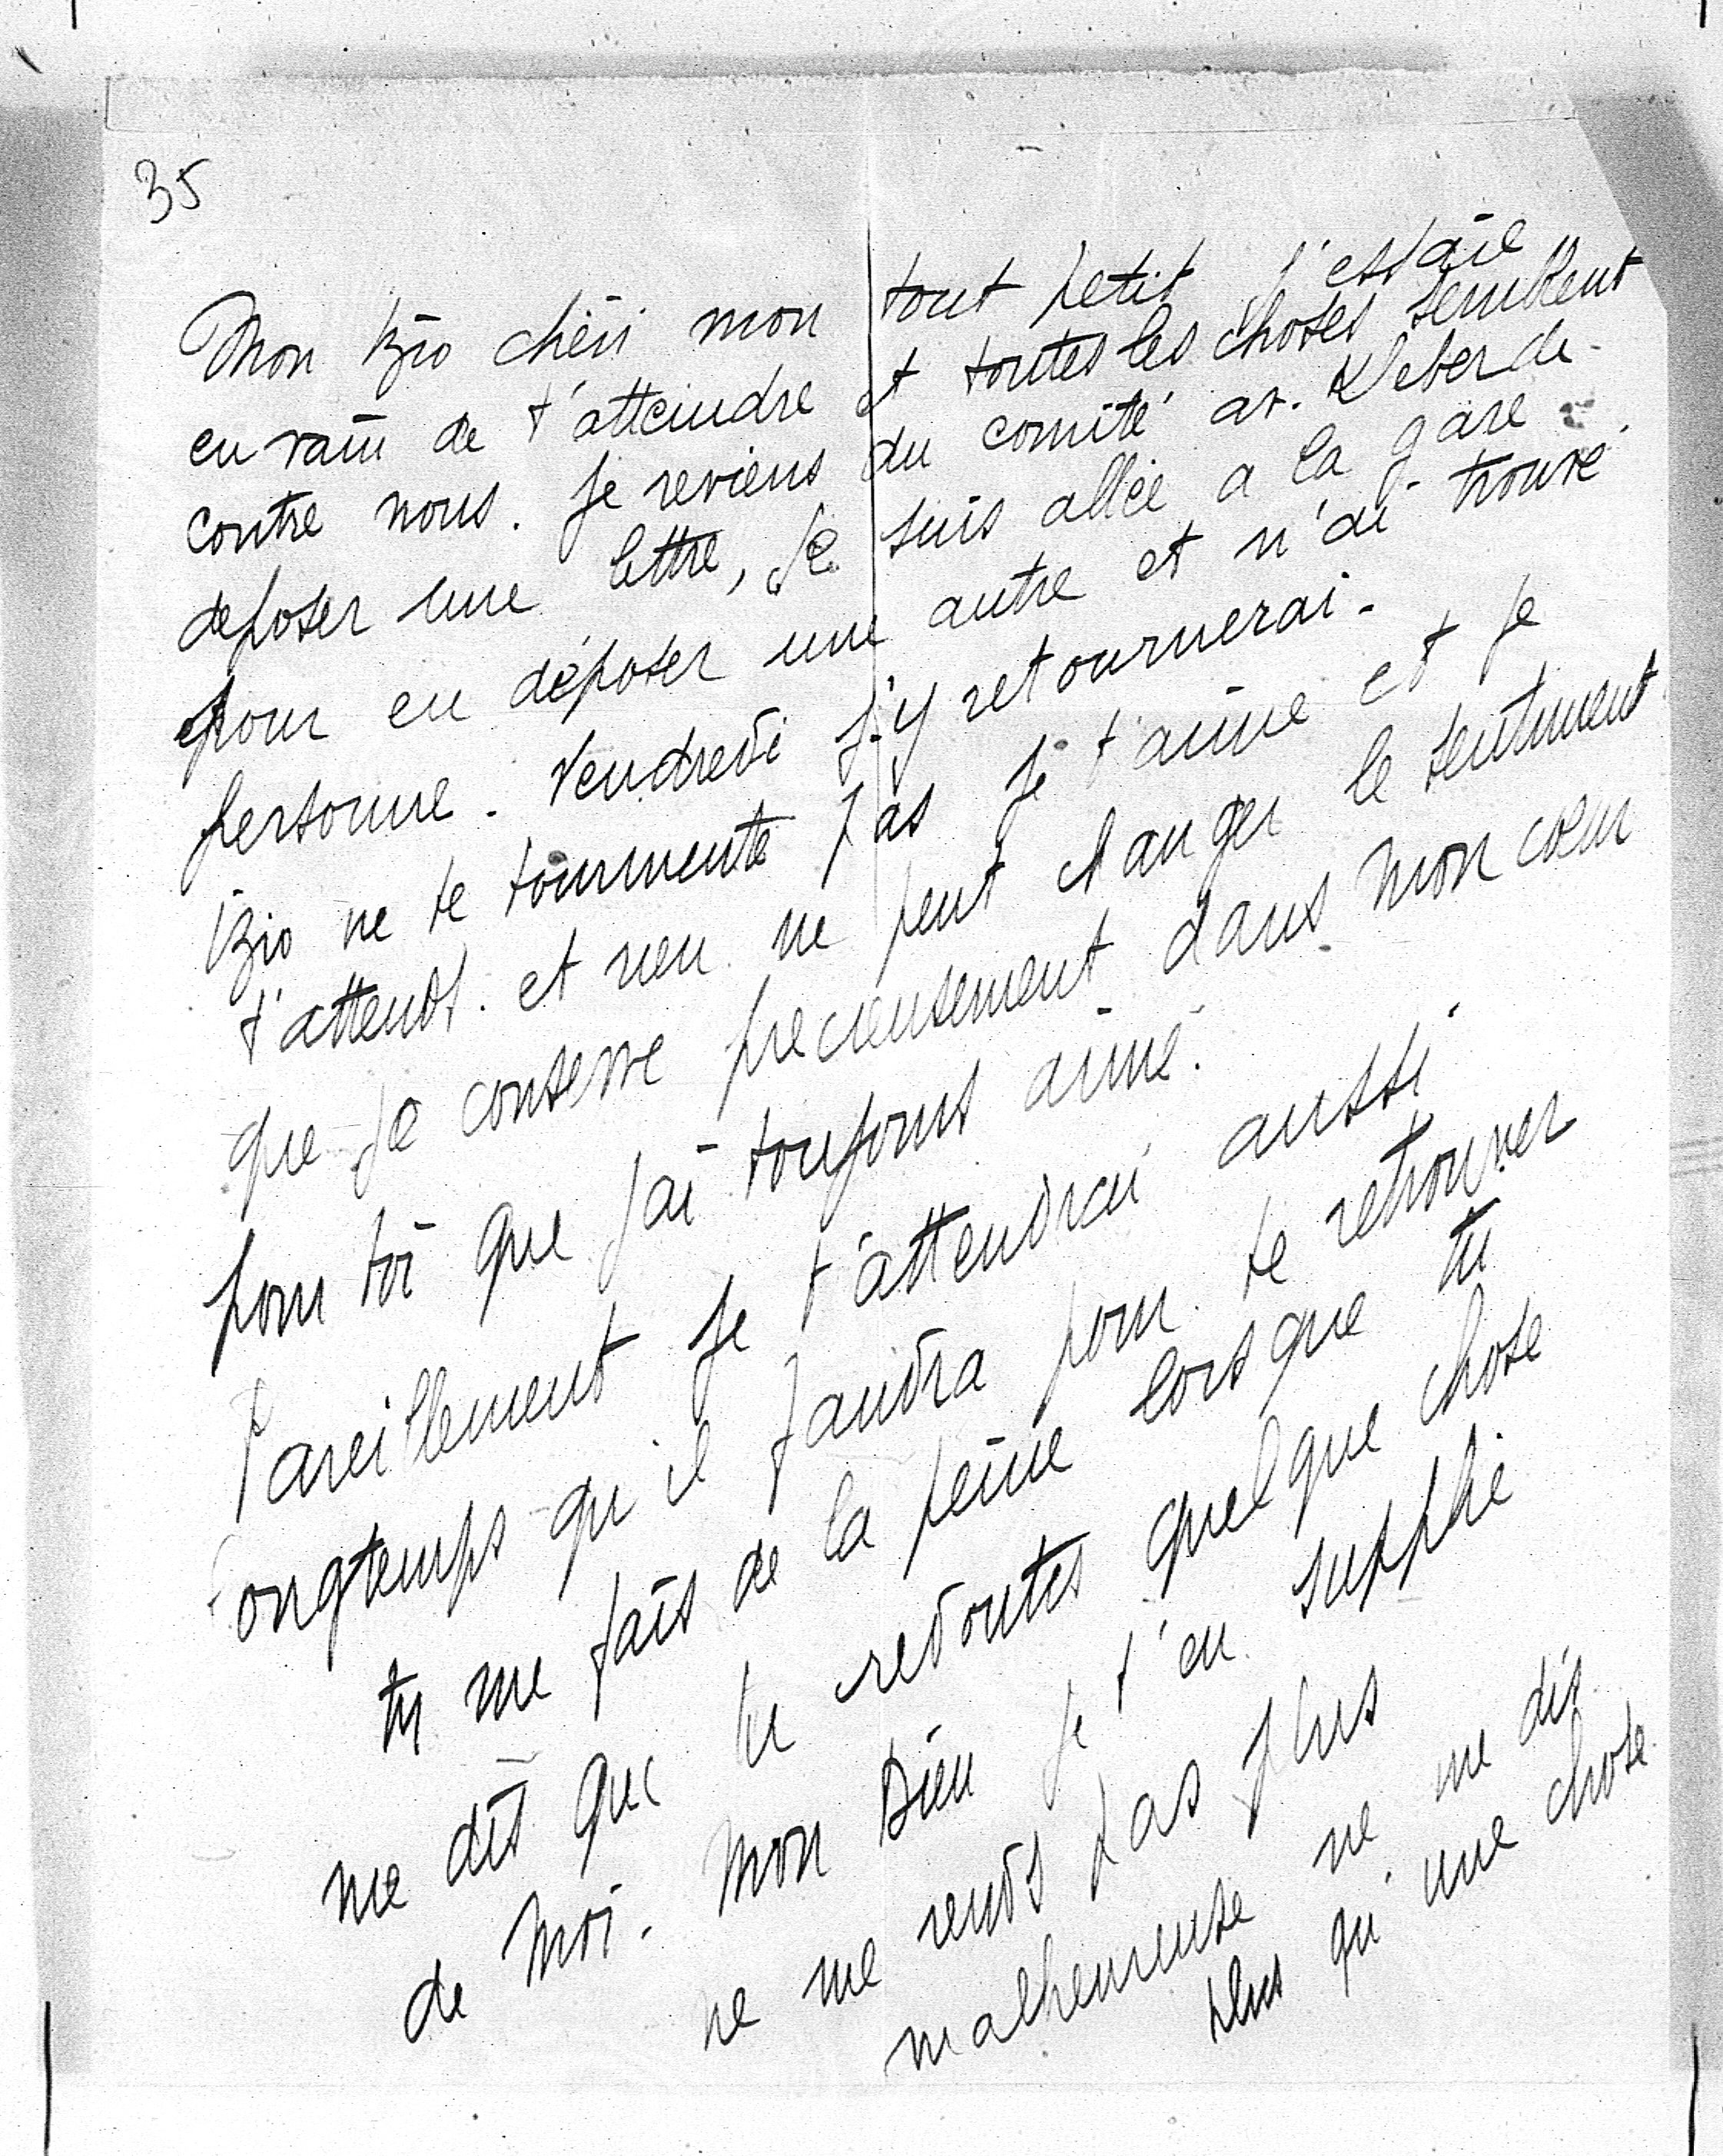 35
Mon Izio chéri mon tout petit j'essaie
en vain de t'atteindre et toutes les choses semblent
contre nous. Je reviens du comité av. Kleber de
deposer une lettre, je suis allée a la gare
pour en déposer une autre et n'ai trouvé
personne. Vendredi j'y retournerai.
Izio ne te tourmente pas je t'aime et je
t'attends. et rien ne peut changer le sentiment
que je conserve precieusement dans mon cœur
pour toi que j'ai toujours aimé.
Pareillement je t'attendrai aussi
longtemps qu'il faudra pour te retrouver
tu me fais de la peine lorsque tu
me dis que tu redoutes quelque chose
de moi. Mon Dieu je t'en supplie
ne me rends pas plus
malheureuse ne me dis
plus qu'une chose